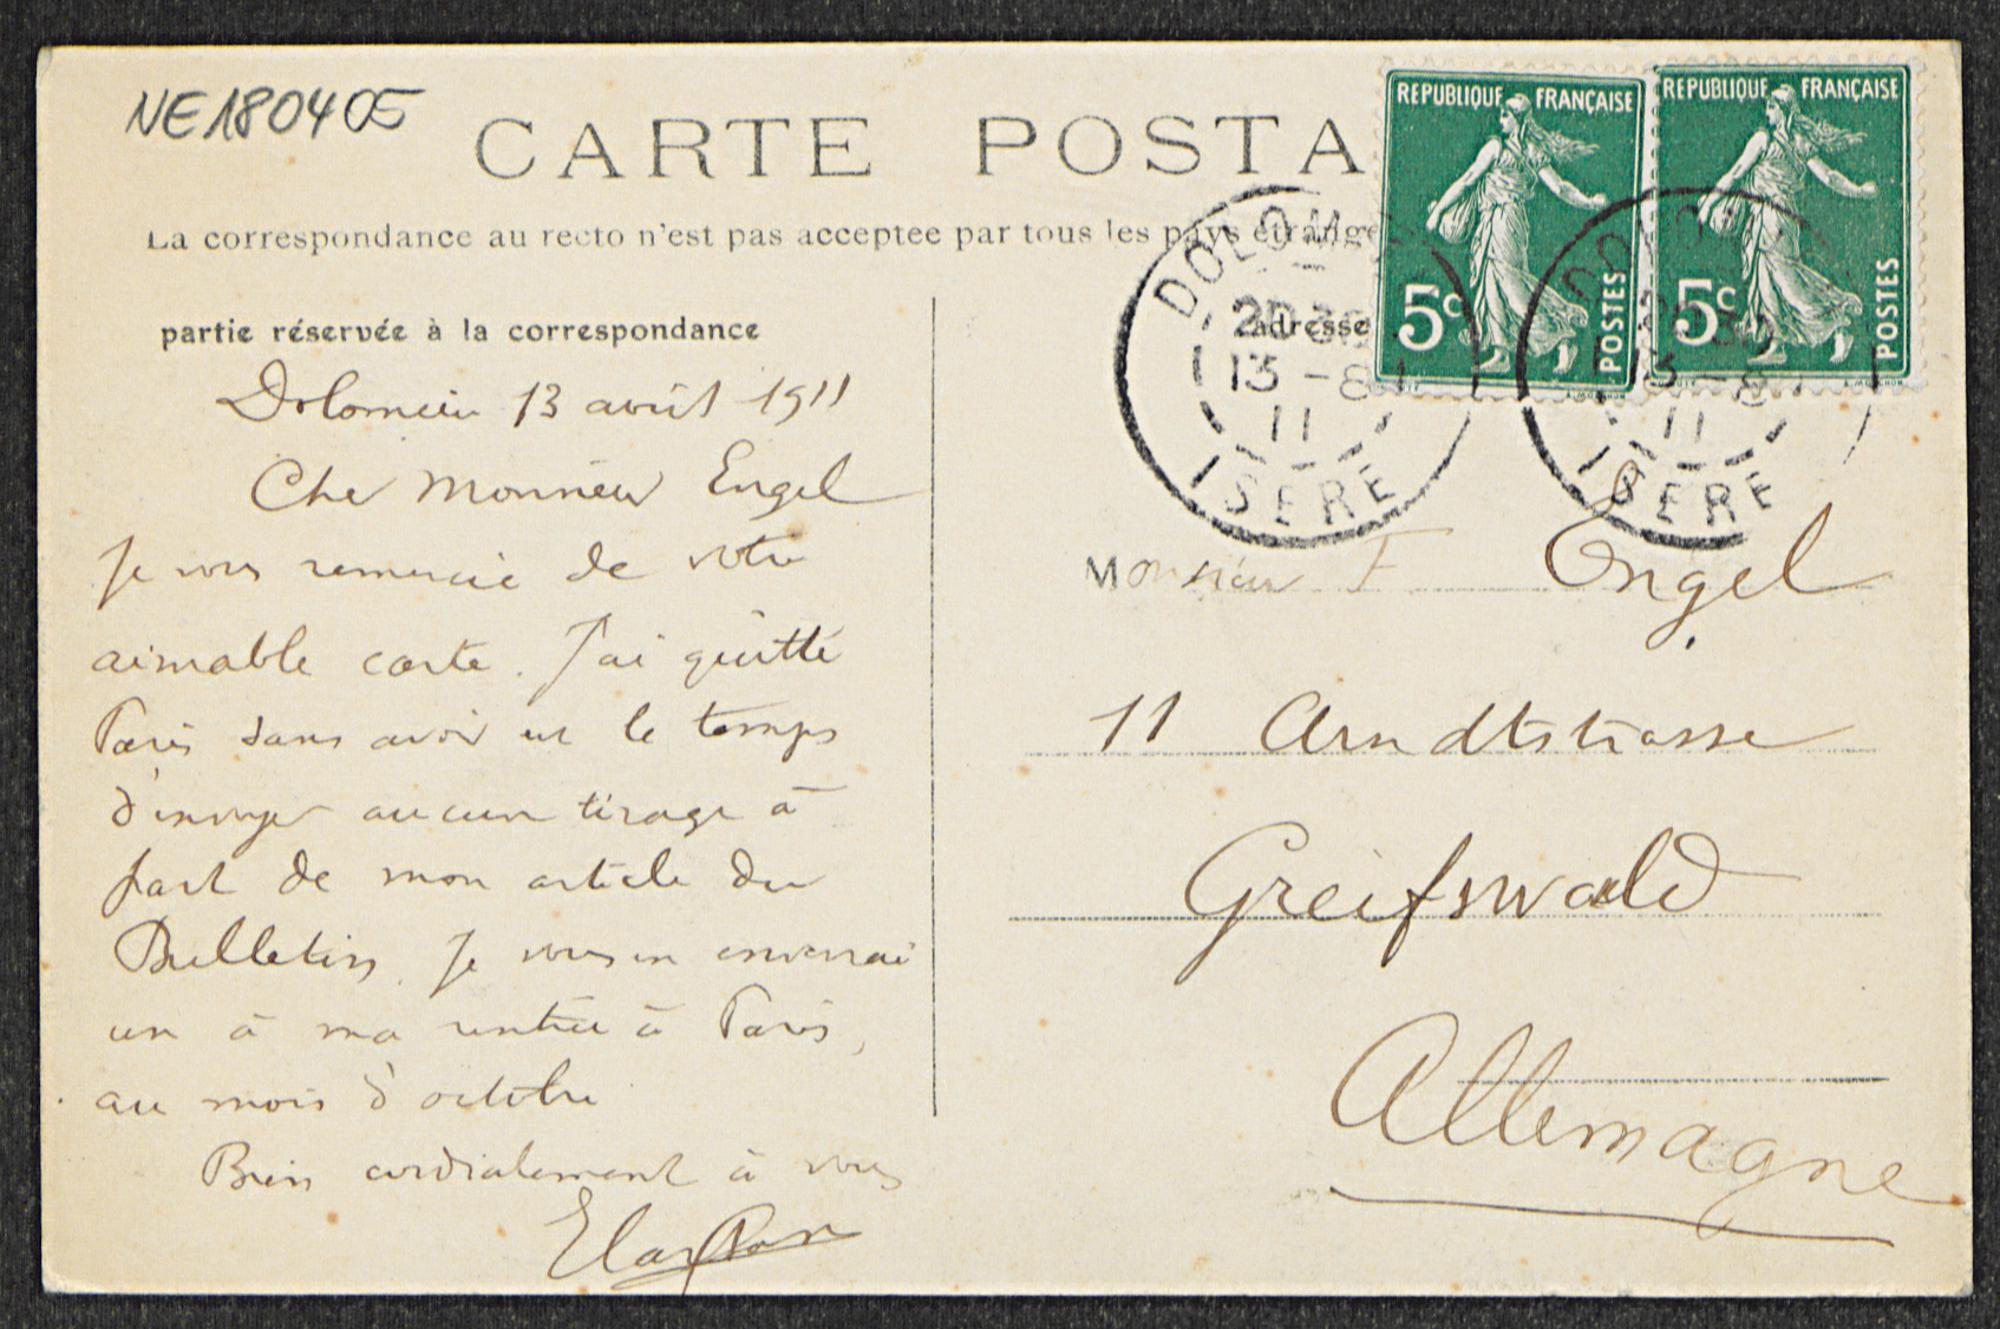 NE180405
CARTE POSTA
La correspondance au recto n'est pas acceptee par tous les pays étrange
partie réservée à la correspondance
adresse
REPUBLIQUE FRANÇAISE
5c
POSTES
REPUBLIQUE FRANÇAISE
5c
POSTES
DOLOM
13 -8
11
ISERE
DOLOM
13 -8
11
ISERE
Dolomieu 13 août 1911
Cher Monsieur Engel
Je vous remercie de votre
aimable carte. J'ai quitté
Paris sans avoir eu le temps
d'envoyer aucun tirage à
part de mon article du
Bulletin. Je vous en enverrai
un à ma rentrée à Paris,
au mois d'octobre
Bien cordialement à vous
Monsieur F Engel
11 Arndtstrasse
Greifswald
Allemagne